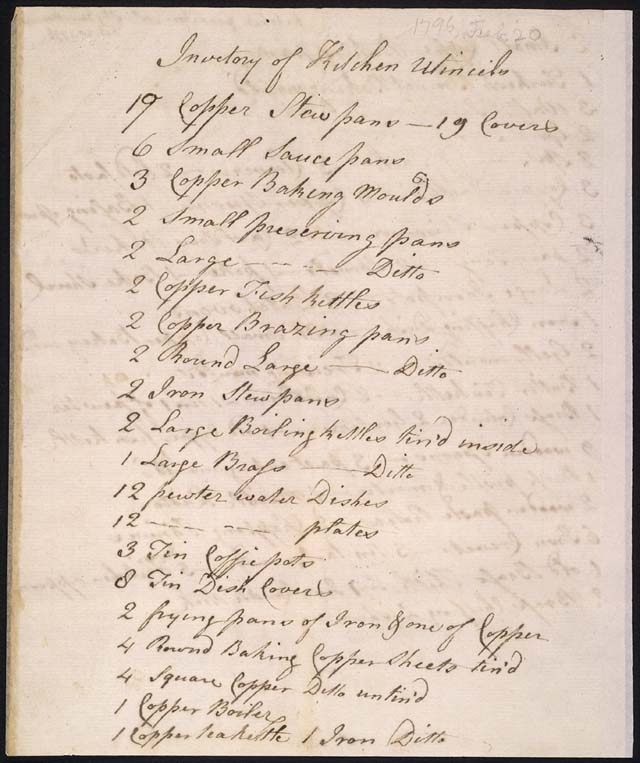 1796, Feb 20
Invetory of Kitchen Utincils
19 Copper Stewpans — 19 Covers
6 Small Saucepans
3 Copper Baking Moulds
2 Small preserving pans
2 Large - - - - Ditto
2 Copper Fish kettles
2 Copper Brazing pans
2 Round Large —— Ditto
2 Iron Stewpans
2 Large Boiling kettles tin'd inside
1 Large Brass —— Ditto
12 pewter water Dishes
12 — - — - plates
3 Tin Coffie pots
8 Tin Dish Covers
2 frying pans of Iron & one of Copper
4 Round Baking Copper Sheets tin'd
4 Square Copper Ditto untin'd
1 Copper Boiler
1 Copper teakettle 1 Iron Ditto